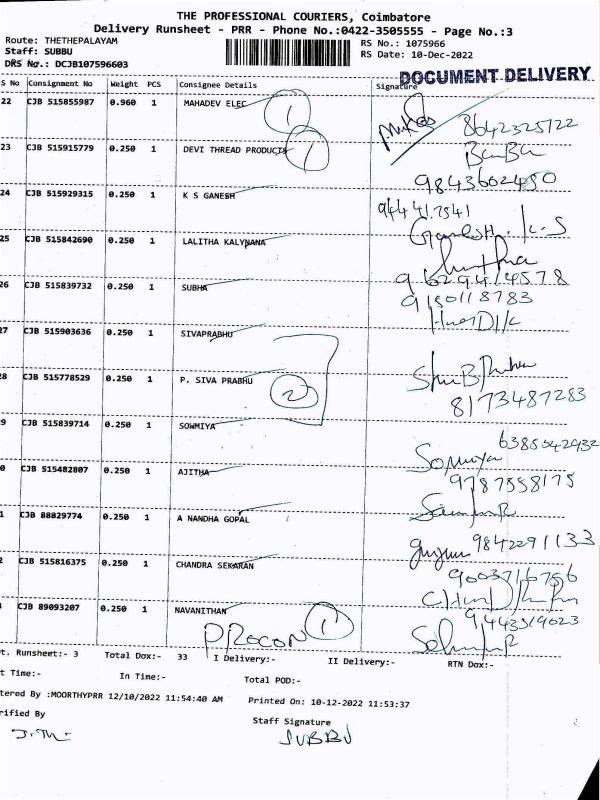 THE PROFESSIONAL COURIERS, Coimbatore
Delivery Runsheet - PRR - Phone No.:0422-3505555 - Page No.:3
Route: THETHEPALAYAM
RS No.: 1075966
Staff: SUBBU
RS Date: 10-Dec-2022
DRS No.: DCJB107596603
DOCUMENT DELIVERY
S No Consignment No Weight PCS Consignee Details Signature
22 CJB 515855987 0.960 1 MAHADEV ELEC 1 8642325722
23 CJB 515915779 0.250 1 DEVI THREAD PRODUCTS 1 BanBu
9843602450
24 CJB 515929315 0.250 1 K S GANESH 944417541
Ganesh. K-S
25 CJB 515842690 0.250 1 LALITHA KALYNANA
9629414578
26 CJB 515839732 0.250 1 SUBHA 9150118783
27 CJB 515903636 0.250 1 SIVAPRABHU
28 CJB 515778529 0.250 1 P. SIVA PRABHU 2
8173487283
9 CJB 515839714 0.250 1 SOWMIYA 6385542932
Sowmiya
0 CJB 515482807 0.250 1 AJITHA 9787558175
1 CJB 88829774 0.250 1 A NANDHA GOPAL
9842291133
2 CJB 515816375 0.250 1 CHANDRA SEKARAN 9003716756
CJB 89093207 0.250 1 NAVANITHAN 9443319023
PROCON 1
t. Runsheet:- 3 Total Dox:- 33 I Delivery:- II Delivery:- RTN Dox:-
t Time:- In Time:- Total POD:-
tered By :MOORTHYPRR 12/10/2022 11:54:40 AM Printed On: 10-12-2022 11:53:37
rified By Staff Signature
SUBBU